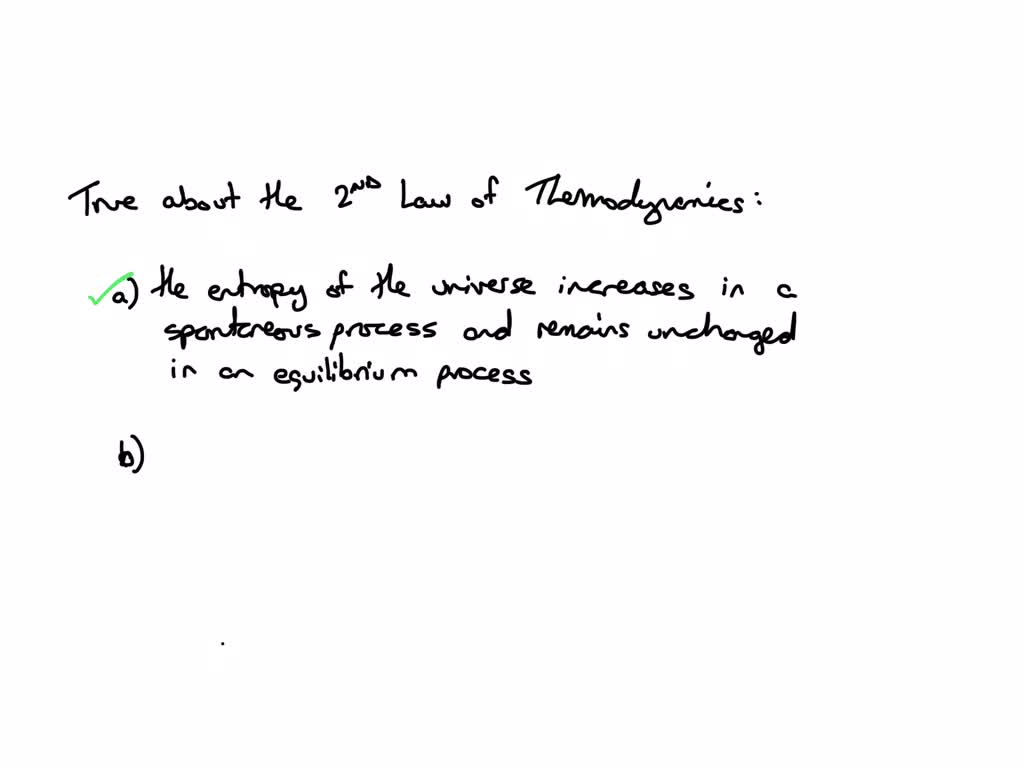 True about the 2ND Law of Themodynamics:
a) the entropy of the universe increases in a
spontaneous process and remains unchanged
in an equilibrium process
b)